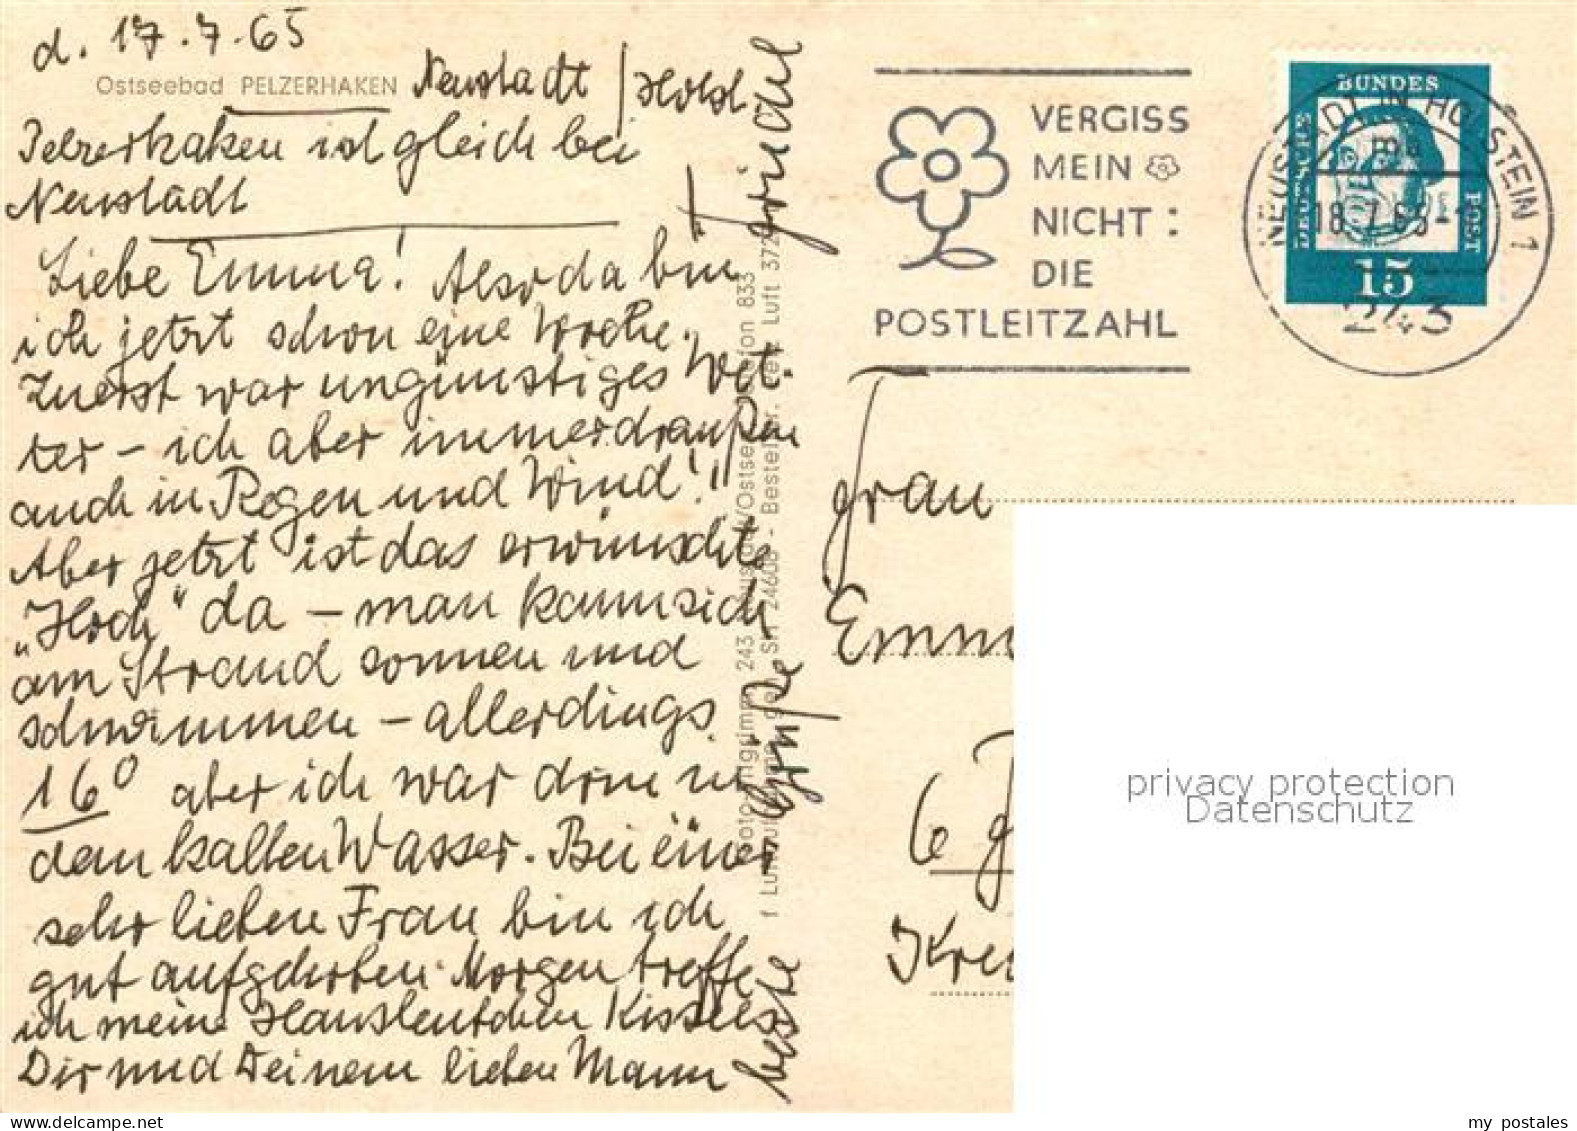 d. 17.7.65
Ostseebad PELZERHAKEN Neustadt / Holst
Pelzerhaken ist gleich bei
Neustadt
Liebe Emma! Also da bin
ich jetzt schon eine Woche.
Zuerst war ungünstiges Wet-
ter – ich aber immer draußen
auch in Regen und Wind!"
Aber jetzt ist das erwünschte
"Hoch" da – man kann sich
am Strand sonnen und
schwimmen – allerdings
16° aber ich war drin in
dem kalten Wasser. Bei einer
sehr lieben Frau bin ich
gut aufgehoben. Morgen treffe
ich meine
Dir und Deinem lieben Mann
beste Grüße
VERGISS
MEIN
NICHT:
DIE
POSTLEITZAHL
DEUTSCHE BUNDES POST
15
NEUSTADT IN HOLSTEIN 1
18.7.65
243
Frau
Emm
6
Kre
privacy protection
Datenschutz
my postales